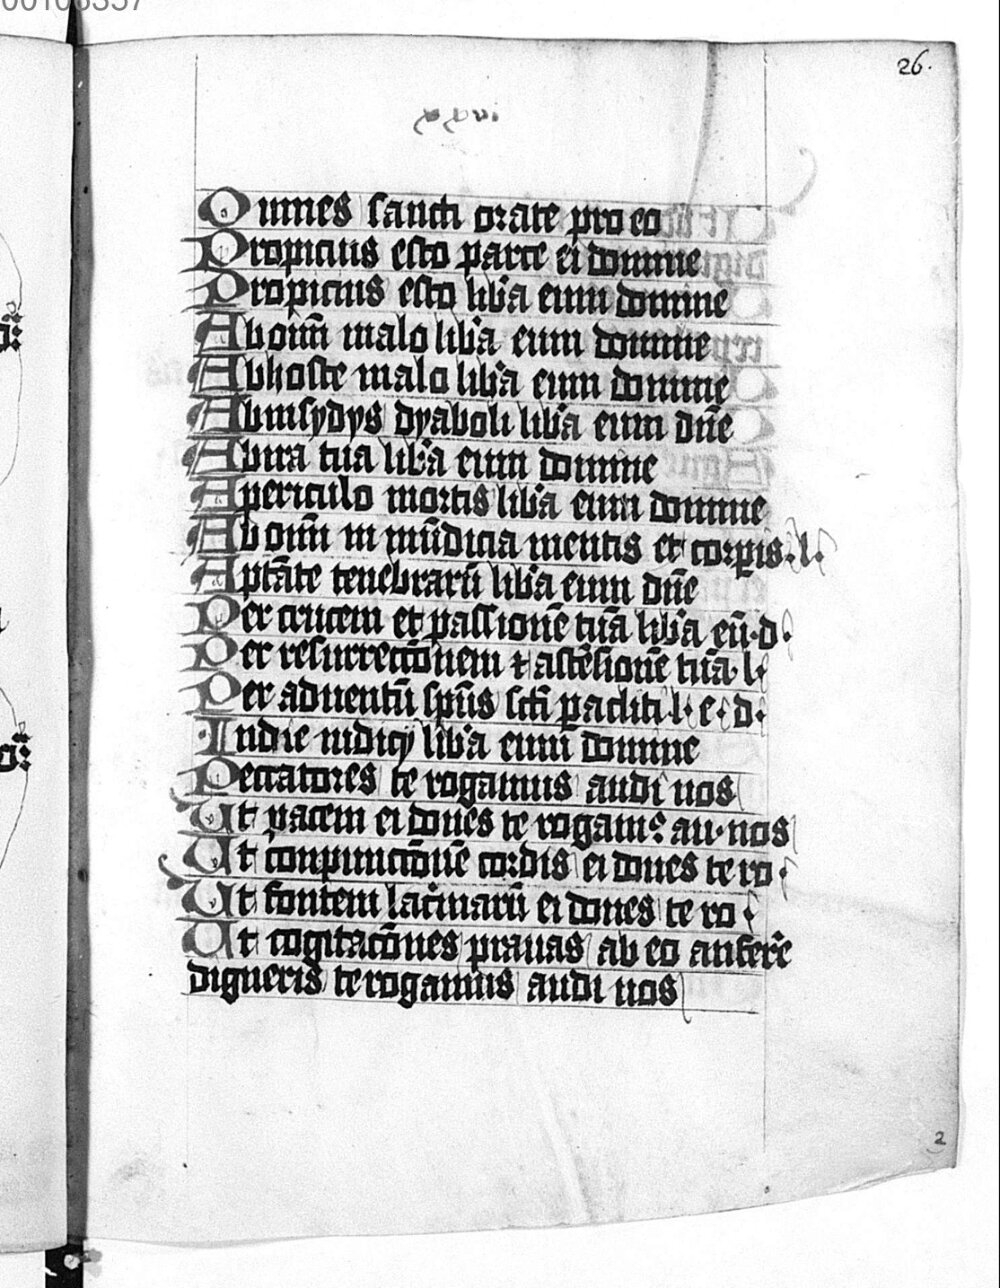 00106357
26.
xxvi
Omnes sancti orate pro eo
Propicius esto parce ei domine
Propicius esto lib'a eum domine
Ab oim̄ malo lib'a eum domine
Ab hoste malo lib'a eum domine
Ab insydys dyaboli lib'a eum dn̄e
Ab ira tua lib'a eum domine
A periculo mortis lib'a eum domine
Ab oim̄ in mūdicia mentis et corpis . l .
A ptāte tenebrarū lib'a eum dn̄e
Per crucem et passionē tuā lib'a eū . d .
Per resurrectōnem ⁊ ascēsionē tuā . l .
Per aduentū sp̄us scti paclīti . l . e . d .
In die iudicy lib'a eum domine
Peccatores te rogamus audi nos
Ut pacem ei dones te rogamꝰ au . nos
Ut conpunctōnē cordis ei dones te ro .
Ut fontem lac'marū ei dones te ro .
Ut cogitacōnes prauas ab eo aufer'e
digneris te rogamus audi nos
2